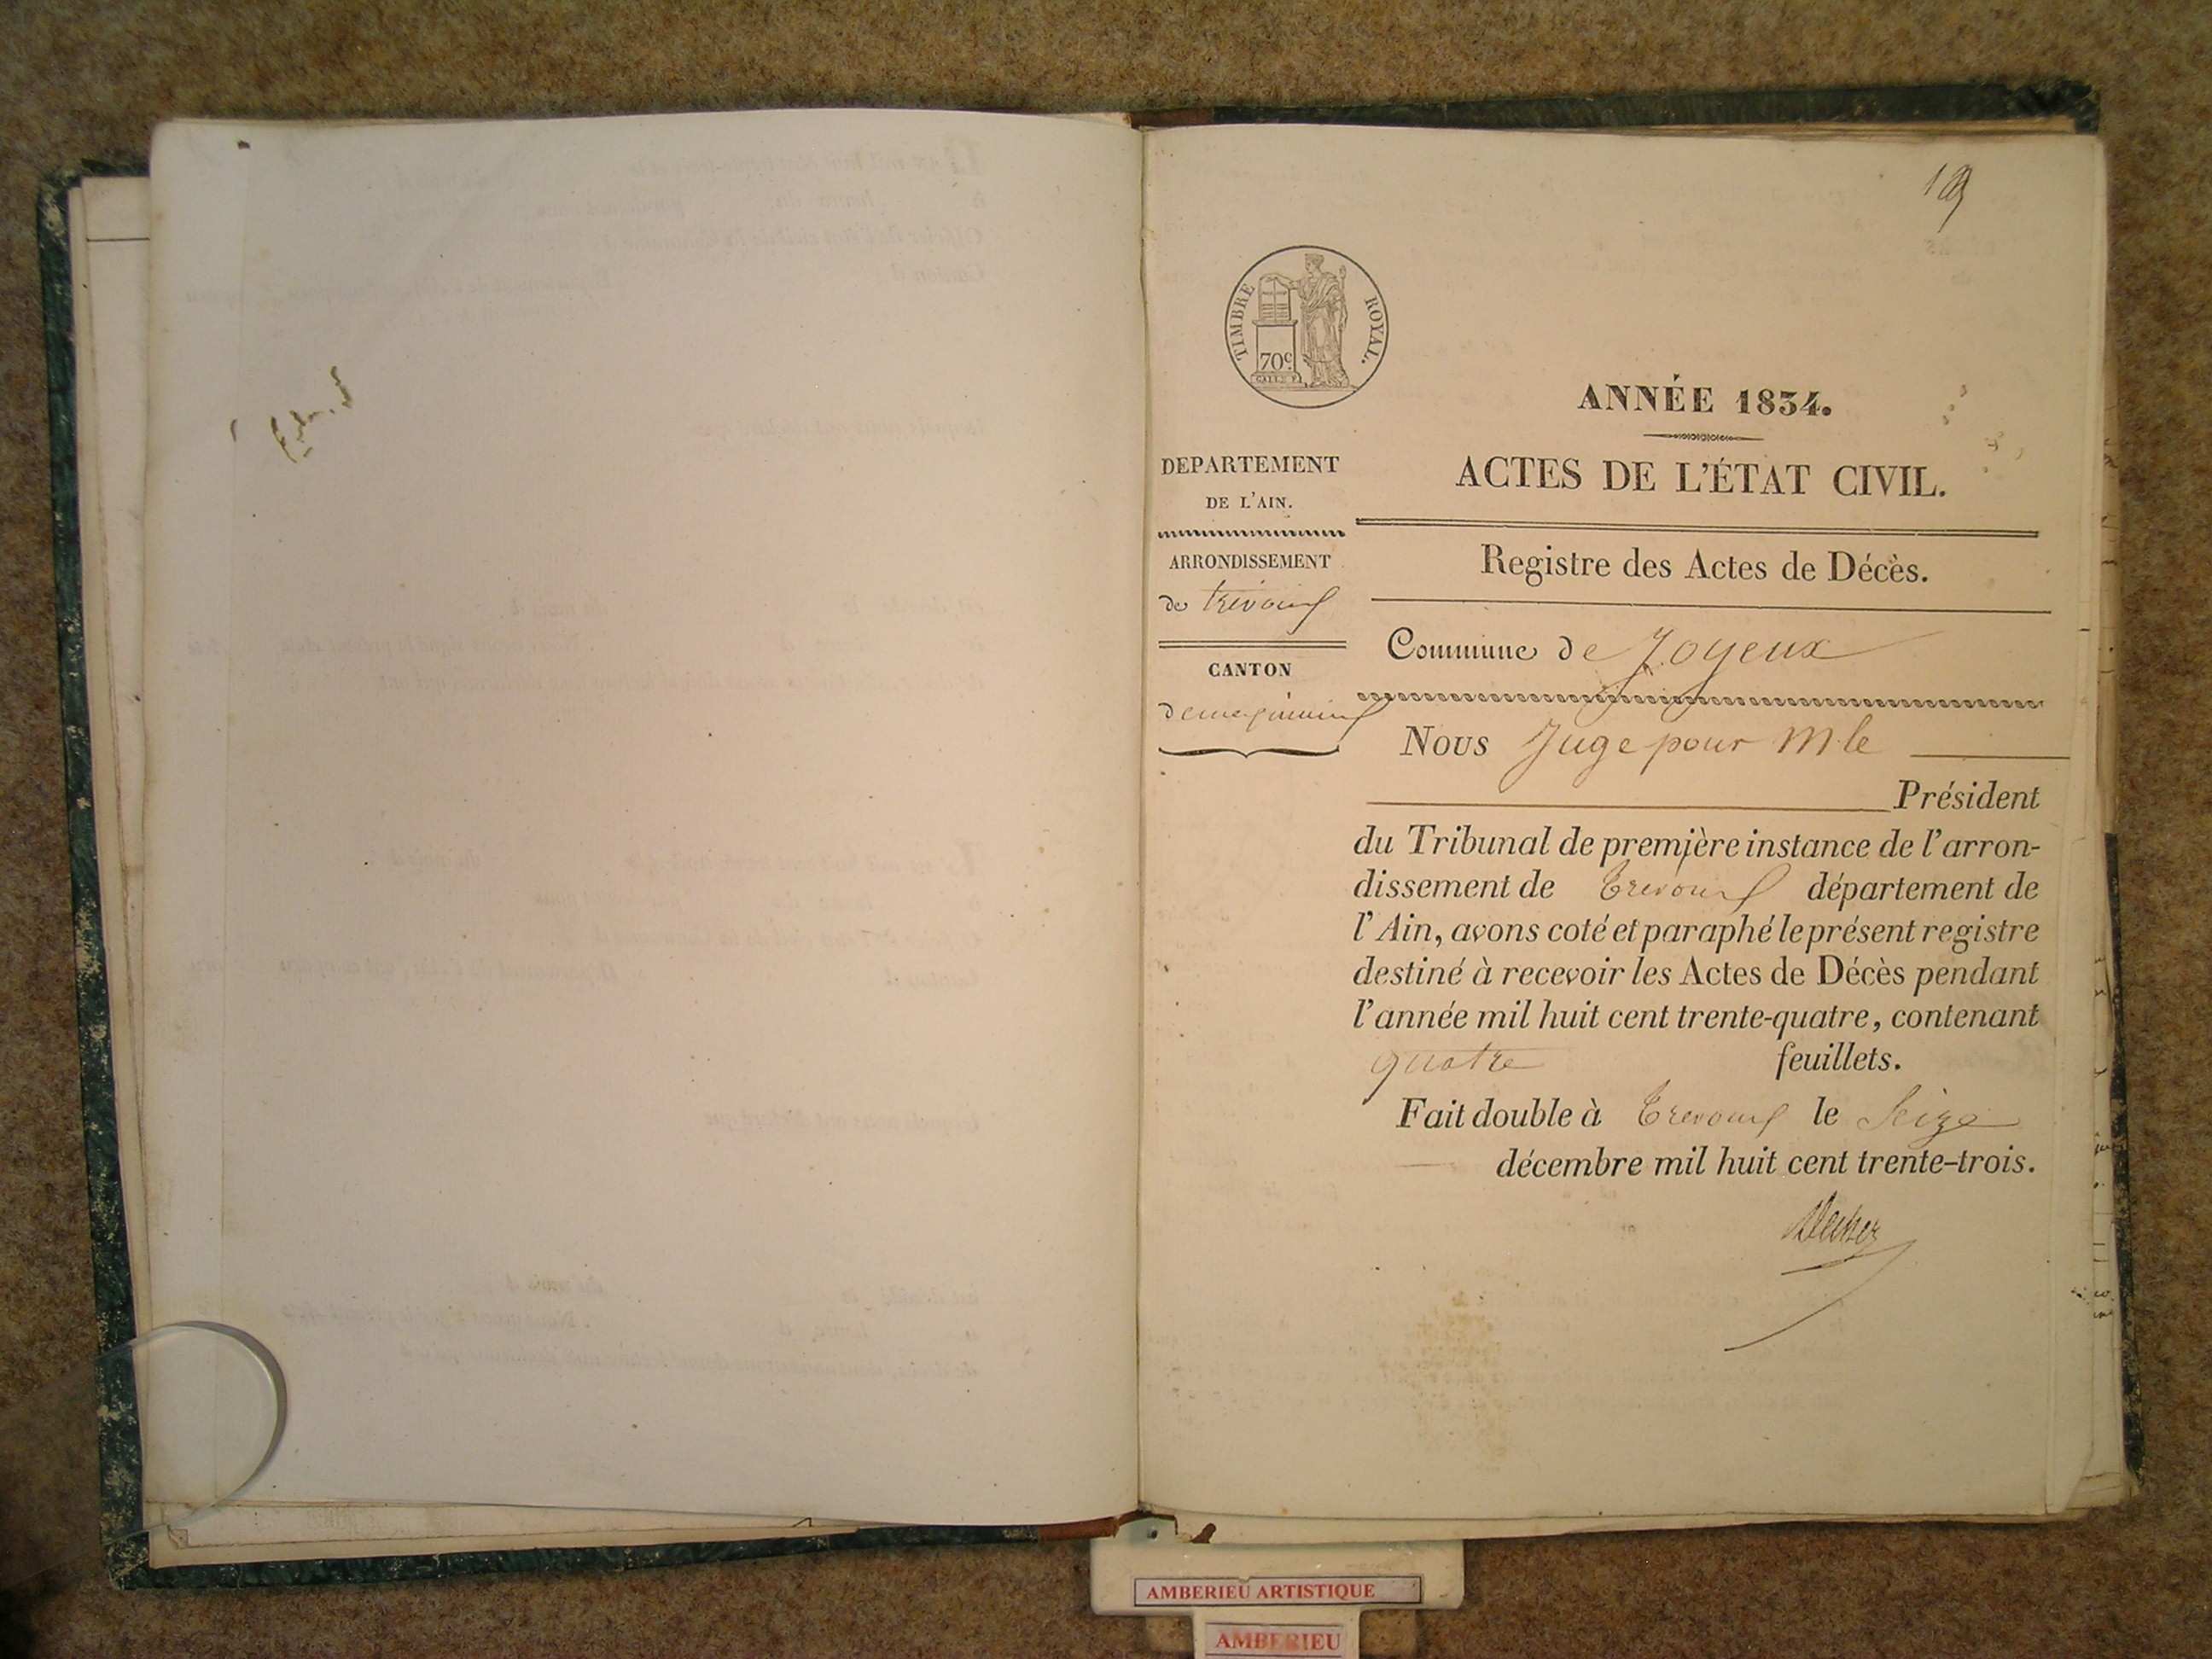 TIMBRE ROYAL.
70c.
ANNÉE 1834.
ACTES DE L'ÉTAT CIVIL.
Registre des Actes de Décès.
DEPARTEMENT
DE L'AIN.
ARRONDISSEMENT
de trévoux
CANTON
de meximieux
Commune de Joyeux
Nous Juge pour M. le
Président
du Tribunal de première instance de l'arron-
dissement de Trevoux département de
l'Ain, avons coté et paraphé le présent registre
destiné à recevoir les Actes de Décès pendant
l'année mil huit cent trente-quatre, contenant
quatre feuillets.
Fait double à Trevoux le Seize
décembre mil huit cent trente-trois.
AMBERIEU ARTISTIQUE
AMBERIEU